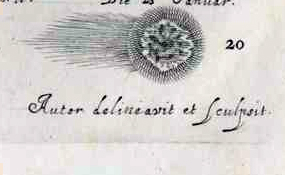 Die 28 Januar.
20
Autor delineavit et sculpsit.